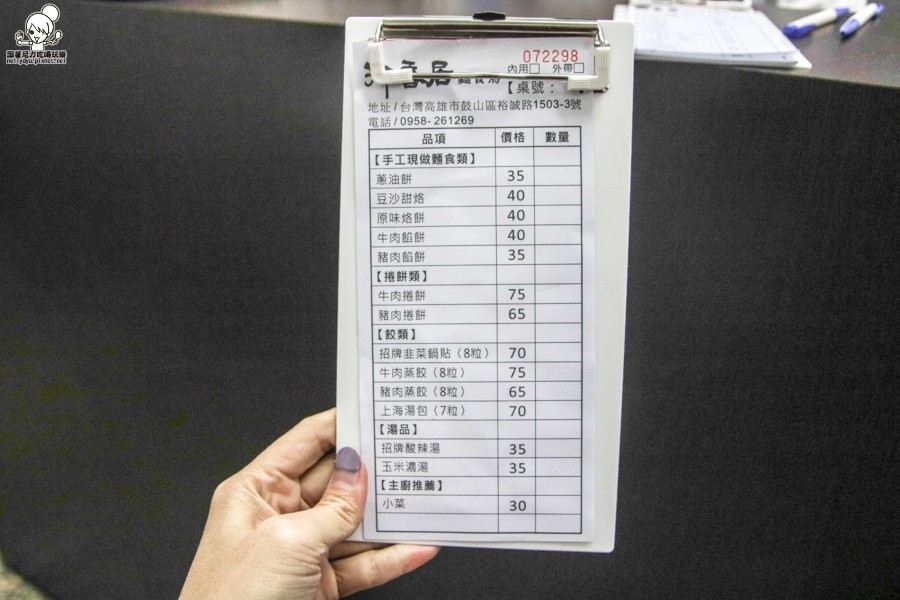 跟著尼力吃喝玩樂
nellydyu.pixnet.net
072298
香居
內用□ 外帶□
【桌號：
地址/台灣高雄市鼓山區裕誠路1503-3號
電話/0958-261269
品項 價格 數量
【手工現做麵食類】
蔥油餅 35
豆沙甜烙 40
原味烙餅 40
牛肉餡餅 40
豬肉餡餅 35
【捲餅類】
牛肉捲餅 75
豬肉捲餅 65
【餃類】
招牌韭菜鍋貼（8粒） 70
牛肉蒸餃（8粒） 75
豬肉蒸餃（8粒） 65
上海湯包（7粒） 70
【湯品】
招牌酸辣湯 35
玉米濃湯 35
【主廚推薦】
小菜 30